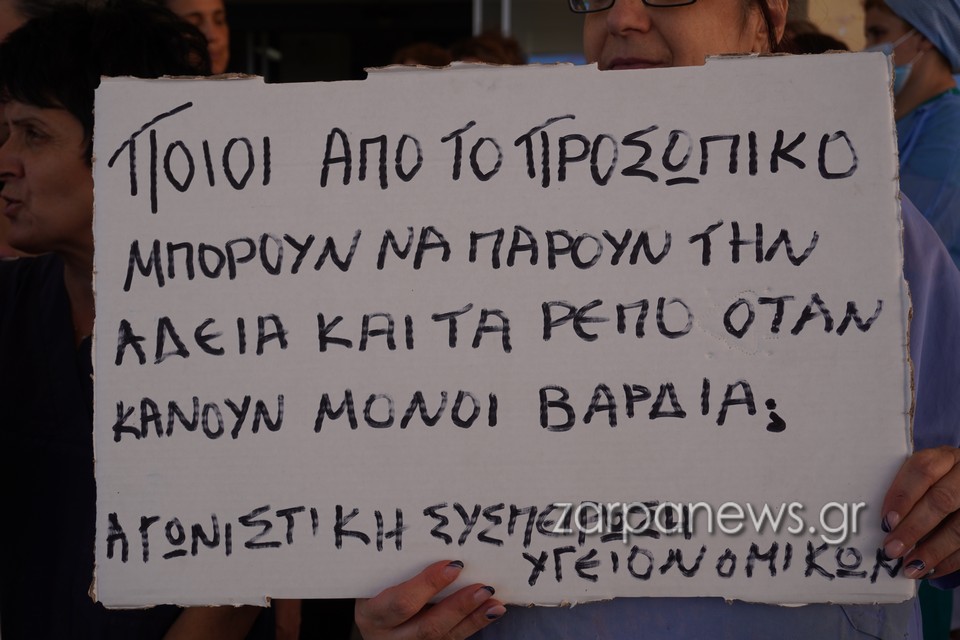 ΠΟΙΟΙ ΑΠΟ ΤΟ ΠΡΟΣΩΠΙΚΟ
ΜΠΟΡΟΥΝ ΝΑ ΠΑΡΟΥΝ ΤΗΝ
ΑΔΕΙΑ ΚΑΙ ΤΑ ΡΕΠΟ ΟΤΑΝ
ΚΑΝΟΥΝ ΜΟΝΟΙ ΒΑΡΔΙΑ;
ΑΓΩΝΙΣΤΙΚΗ ΣΥΣΠΕΙΡΩΣΗ
zarpanews.gr
ΥΓΕΙΟΝΟΜΙΚΩΝ